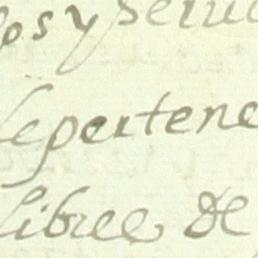 los y Servi
le pertene
libre de